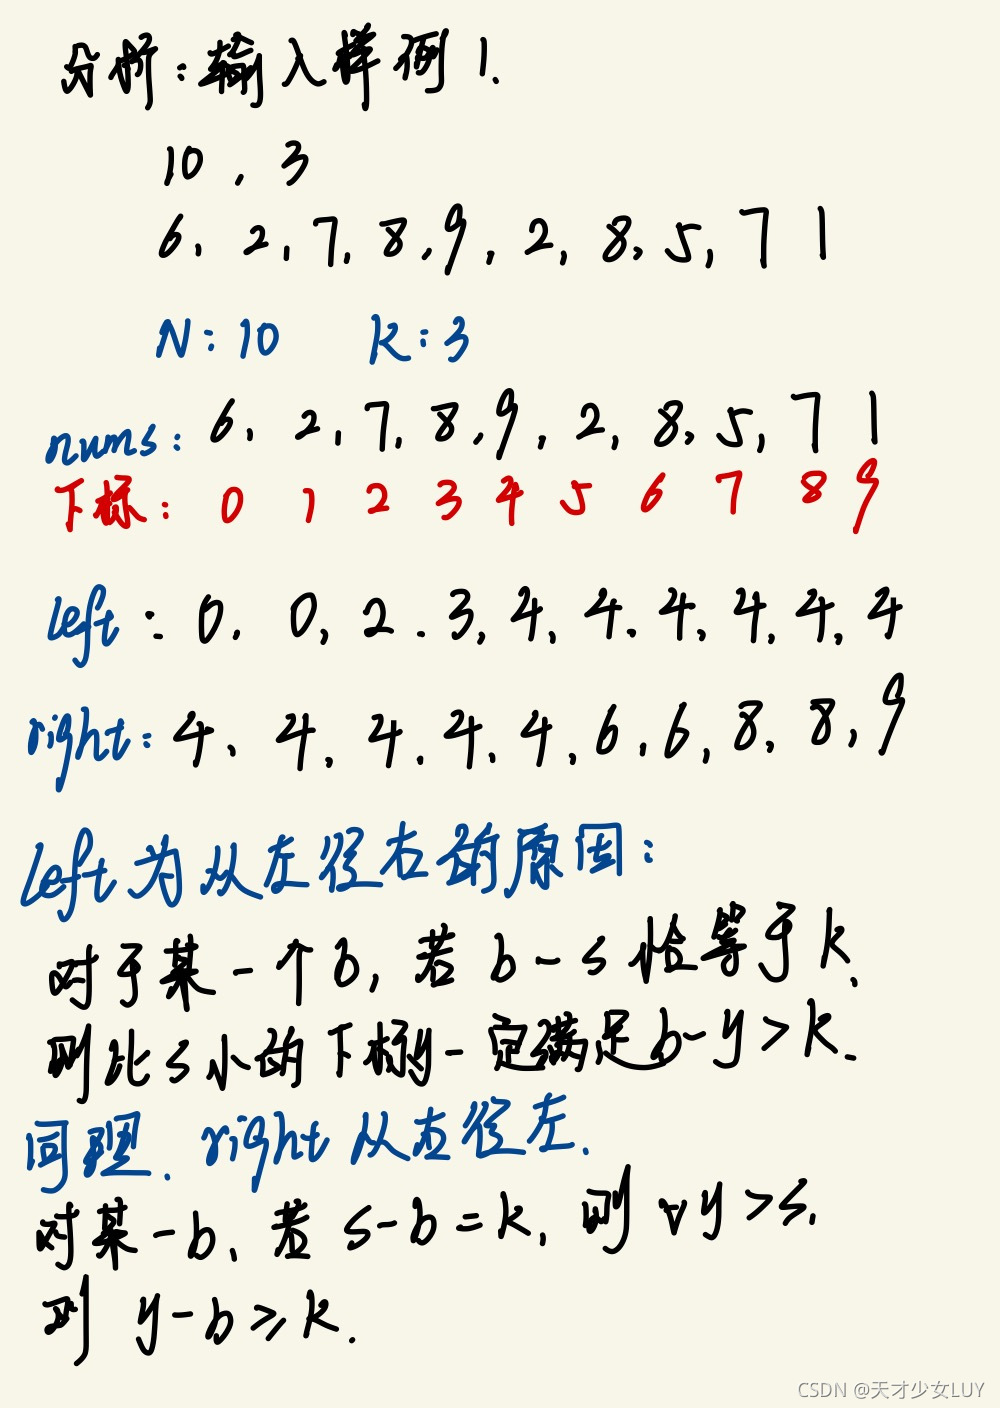 分析：输入样例1.
10，3
6，2，7，8，9，2，8，5，7 1
N：10 K：3
nums：6，2，7，8，9，2，8，5，7 1
下标：0 1 2 3 4 5 6 7 8 9
left：0，0，2．3，4，4．4，4，4，4
right：4、4，4．4，4，6，6，8，8，9
left为从左径右的原因：
对于某一个b，若b-s恰等于k，
则比s小的下标y一定满足b-y>k.
同理．right从右径左.
对某一b、若s-b=k，则∀y>s，
则 y-b≥k.
CSDN @天才少女LUY